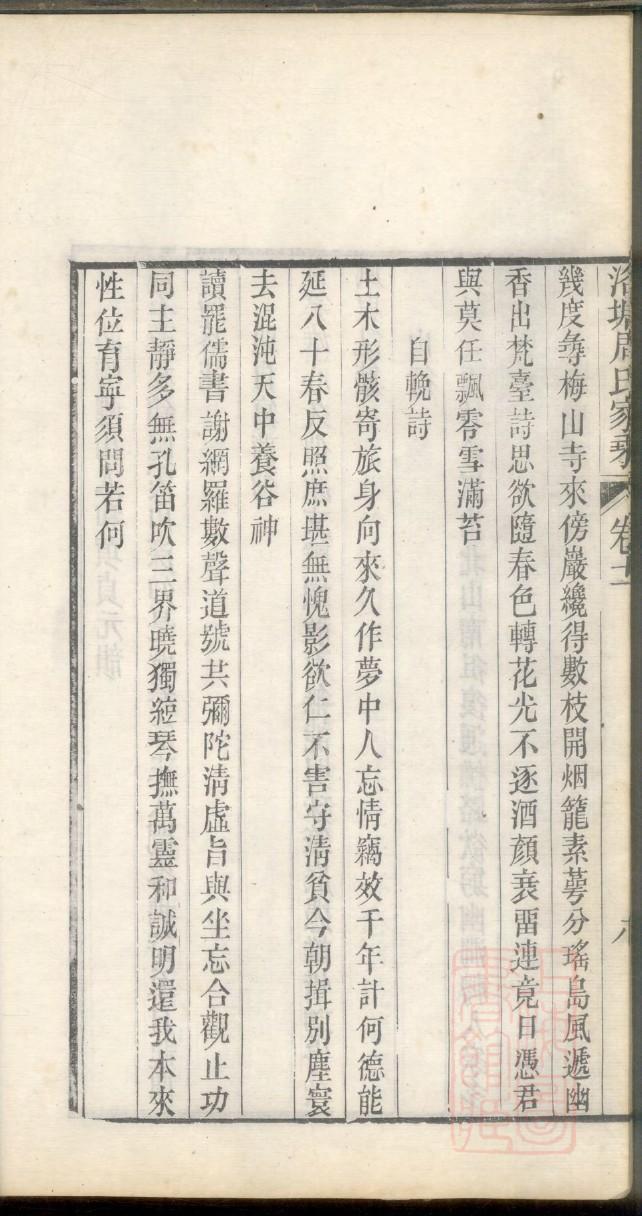 洛塘周氏家乘 卷十一 六
幾度尋梅山寺來傍巖纔得數枝開烟籠素萼分瑤島風遞幽
香出梵臺詩思欲隨春色轉花光不逐酒顏衰畱連竟日憑君
與莫任飄零雪滿苔
自輓詩
土木形骸寄旅身向來久作夢中人忘情竊效千年計何德能
延八十春反照庶堪無愧影欲仁不害守淸貧今朝揖別塵寰
去混沌天中養谷神
讀罷儒書謝網羅數聲道號共彌陀淸虛旨與坐忘合觀止功
同主靜多無孔笛吹三界曉獨絃琴撫萬靈和誠明還我本來
性位育寧須問若何